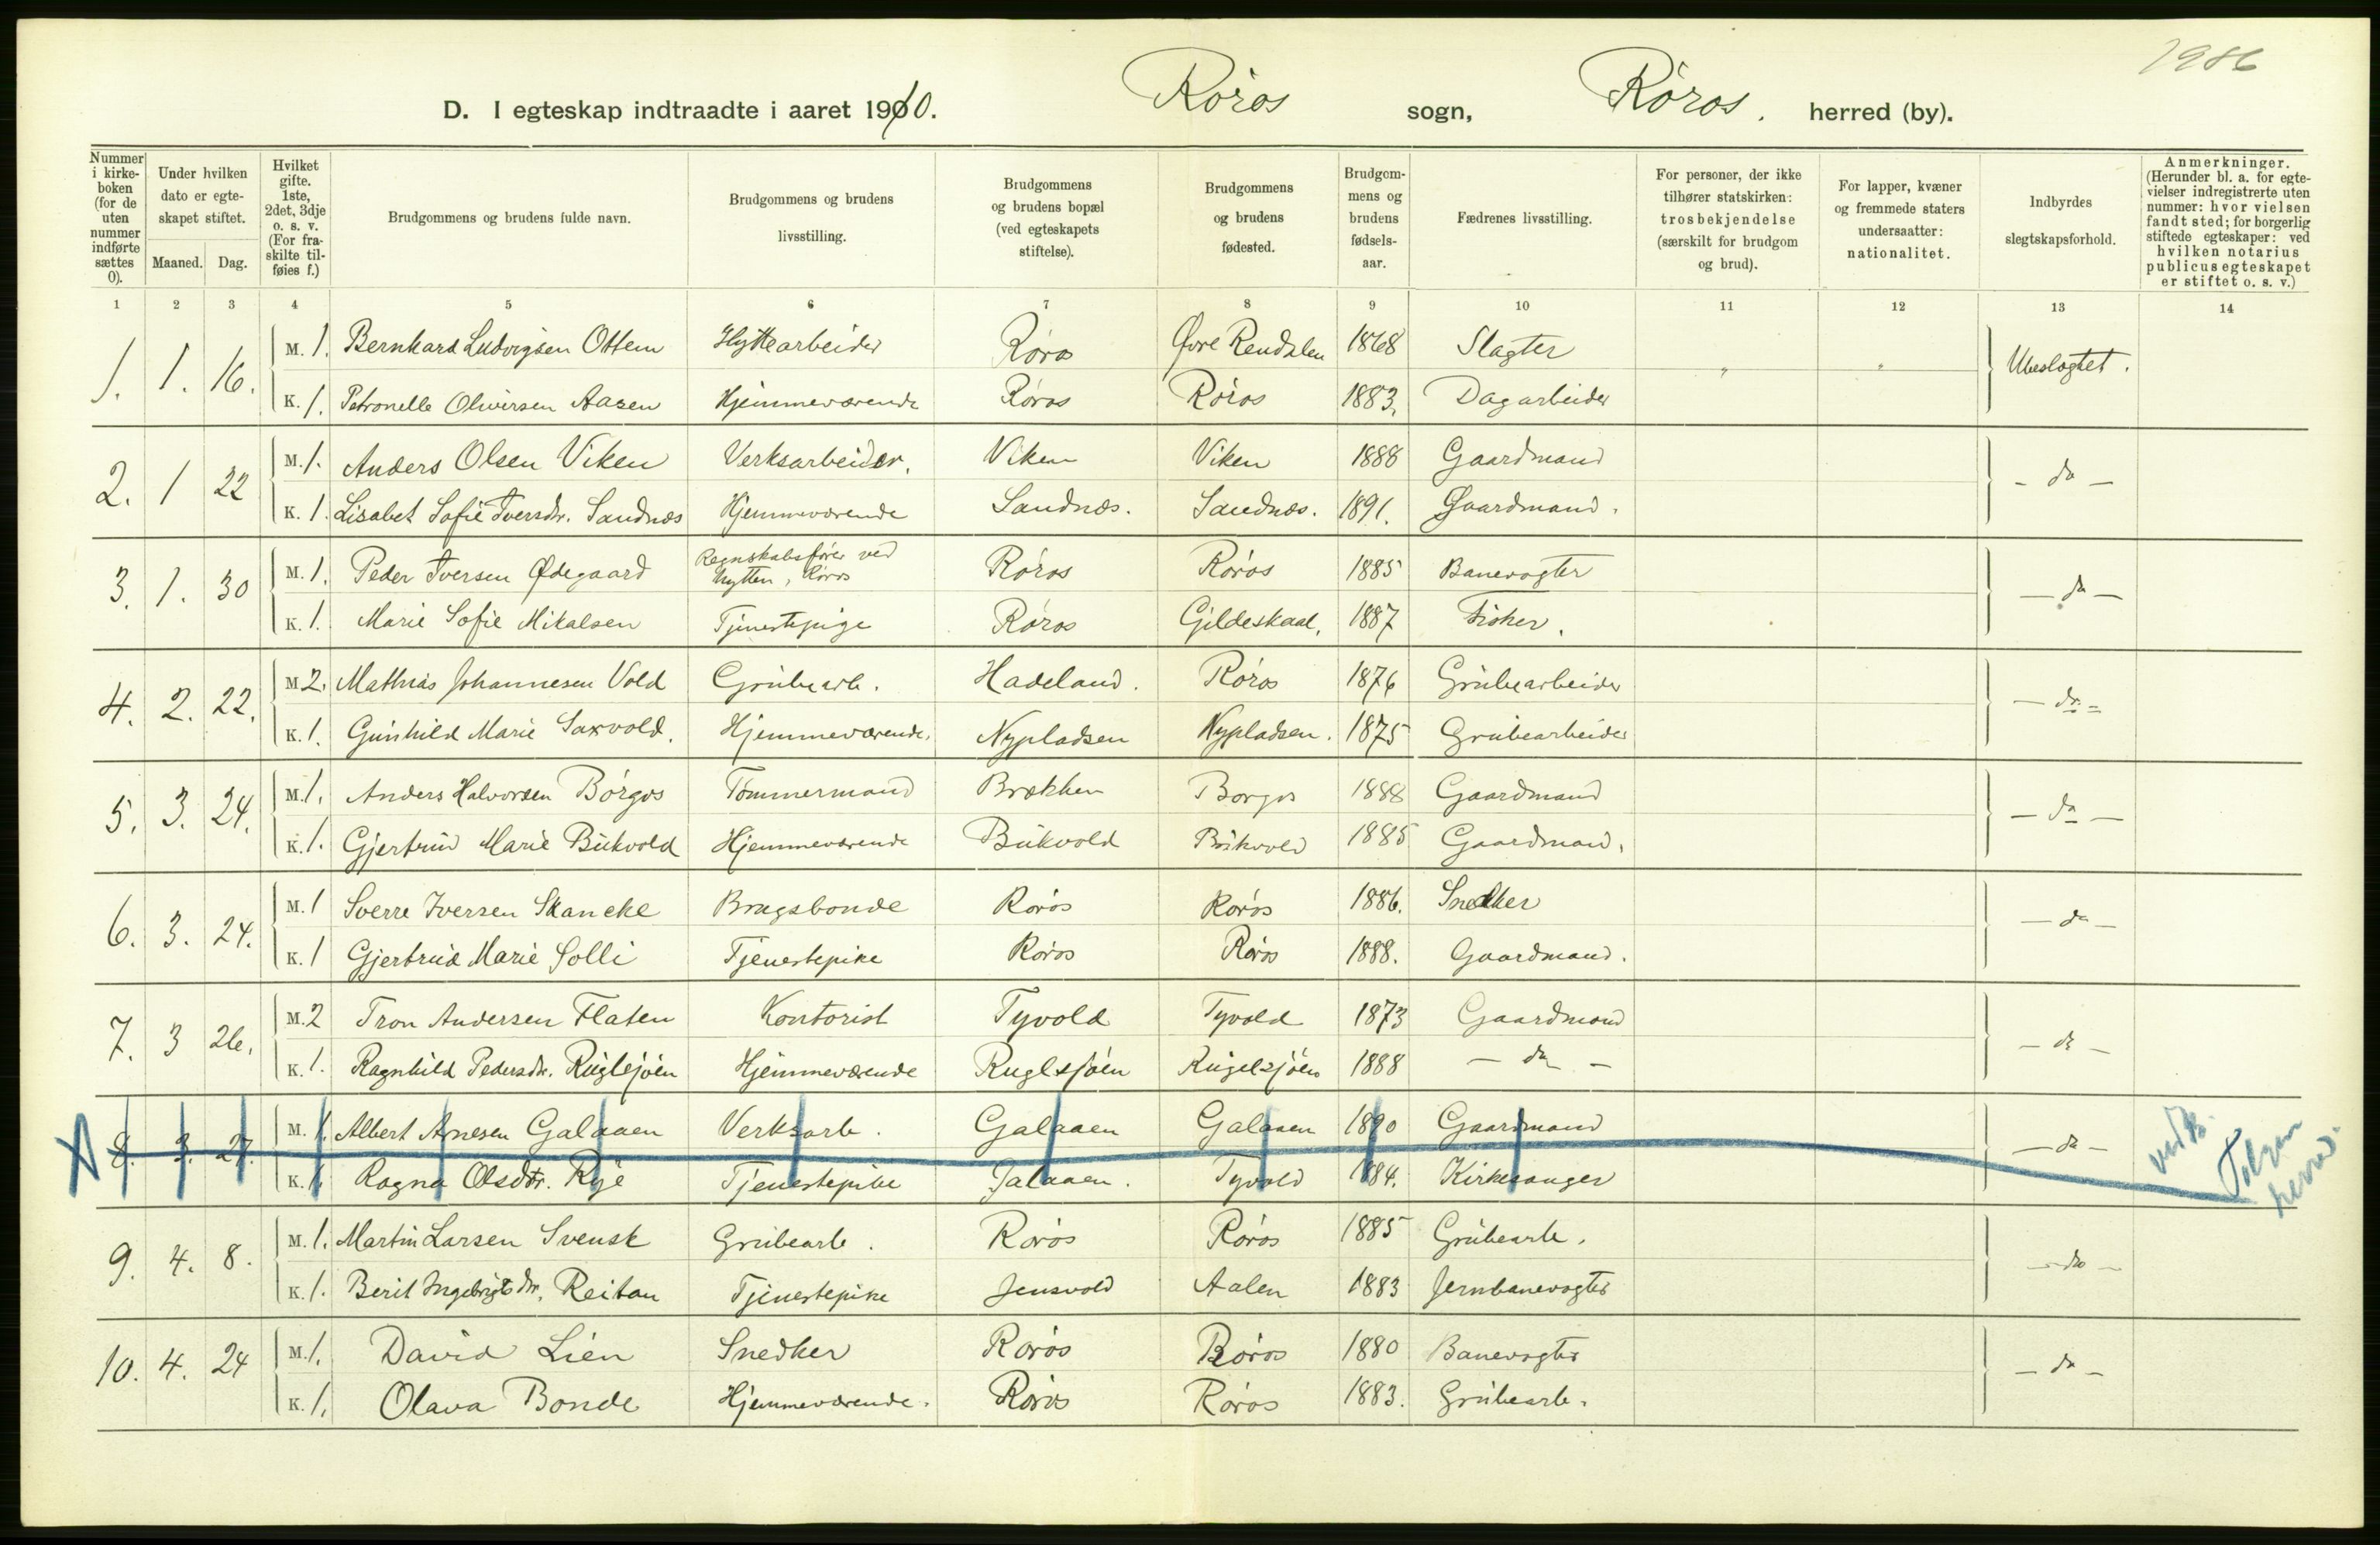 1986
D. I egteskap indtraadte i aaret 1910. Røros sogn, Røros. herred (by).
Nummer i kirkeboken (for de uten nummer indførte sættes 0).
Under hvilken dato er egteskapet stiftet.
Maaned. Dag.
Hvilket gifte. 1ste, 2det, 3dje o. s. v. (For fraskilte tilføies f.)
Brudgommens og brudens fulde navn.
Brudgommens og brudens livsstilling.
Brudgommens og brudens bopæl (ved egteskapets stiftelse).
Brudgommens og brudens fødested.
Brudgommens og brudens fødselsaar.
Fædrenes livsstilling.
For personer, der ikke tilhører statskirken: trosbekjendelse (særskilt for brudgom og brud).
For lapper, kvæner og fremmede staters undersaatter: nationalitet.
Indbyrdes slegtskapsforhold.
Anmerkninger. (Herunder bl. a. for egtevielser indregistrerte uten nummer: hvor vielsen fandt sted; for borgerlig stiftede egteskaper: ved hvilken notarius publicus egteskapet er stiftet o. s. v.)
1 2 3 4 5 6 7 8 9 10 11 12 13 14
1. 1. 16. M. 1. Bernhard Ludvigsen Ottem Hyttearbeider Røros Øvre Rendalen 1868 Slagter " " Ubeslægtet.
K. 1. Petronelle Oliversen Aasen Hjemmeværende Røros Røros 1883. Dagarbeider
2. 1 22 M. 1. Anders Olsen Viken Verksarbeider. Viken Viken 1888 Gaardmand - do -
K. 1. Lisabet Sofie Iversdr. Sandnæs Hjemmeværende Sandnæs. Sandnæs. 1891. Gaardmand.
3. 1. 30 M. 1. Peder Iversen Ødegaard Regnskabsfører ved Hytten, Røros Røros Røros 1885 Banevogter - do -
K. 1. Marie Sofie Mikalsen Tjenestepige Røros Gildeskaal. 1887 Fisker.
4. 2. 22. M 2. Mathias Johannesen Vold Grubearb. Hadeland. Røros 1876 Grubearbeider - do -
K. 1. Gunhild Marie Saxvold. Hjemmeværende. Nypladsen Nypladsen. 1875 Grubearbeider
5. 3. 24. M. 1. Anders Halvorsen Borgos Tømmermand Brækken Borgos 1888 Gaardmand - do -
K. 1. Gjertrud Marie Bukvold Hjemmeværende Bukvold Bukvold 1885 Gaardmand.
6. 3. 24. M. 1 Sverre Iversen Skancke Brugsbonde Røros Røros 1886. Snedker - do -
K. 1 Gjertrud Marie Solli Tjenestepike Røros Røros 1888. Gaardmand.
7. 3 26. M. 2 Tron Andersen Flaten Kontorist Tyvold Tyvold 1873 Gaardmand - do -
K. 1. Ragnhild Pedersdr. Ruglsjøen Hjemmeværende Ruglsjøen Rugelsjøen 1888 - do -
8. 3. 27. M. 1. Albert Arnesen Galaaen Verksarb. Galaaen Galaaen 1890 Gaardmand - do - Tolgen herred.
K. 1. Ragna Olsdtr. Rye Tjenestepike Galaaen. Tyvold 1884. Kirkesanger
9. 4. 8. M. 1. Martin Larsen Svensk Grubearb. Røros Røros 1885 Grubearb. - do -
K. 1. Berit Ingebrigtsdtr. Reitan Tjenestepike Jensvold Aalen 1883 Jernbanevogter
10. 4. 24 M. 1. David Lien Snedker Røros Røros 1880 Banevogter - do -
K. 1. Olava Bonde Hjemmeværende. Røros Røros 1883. Grubearb.